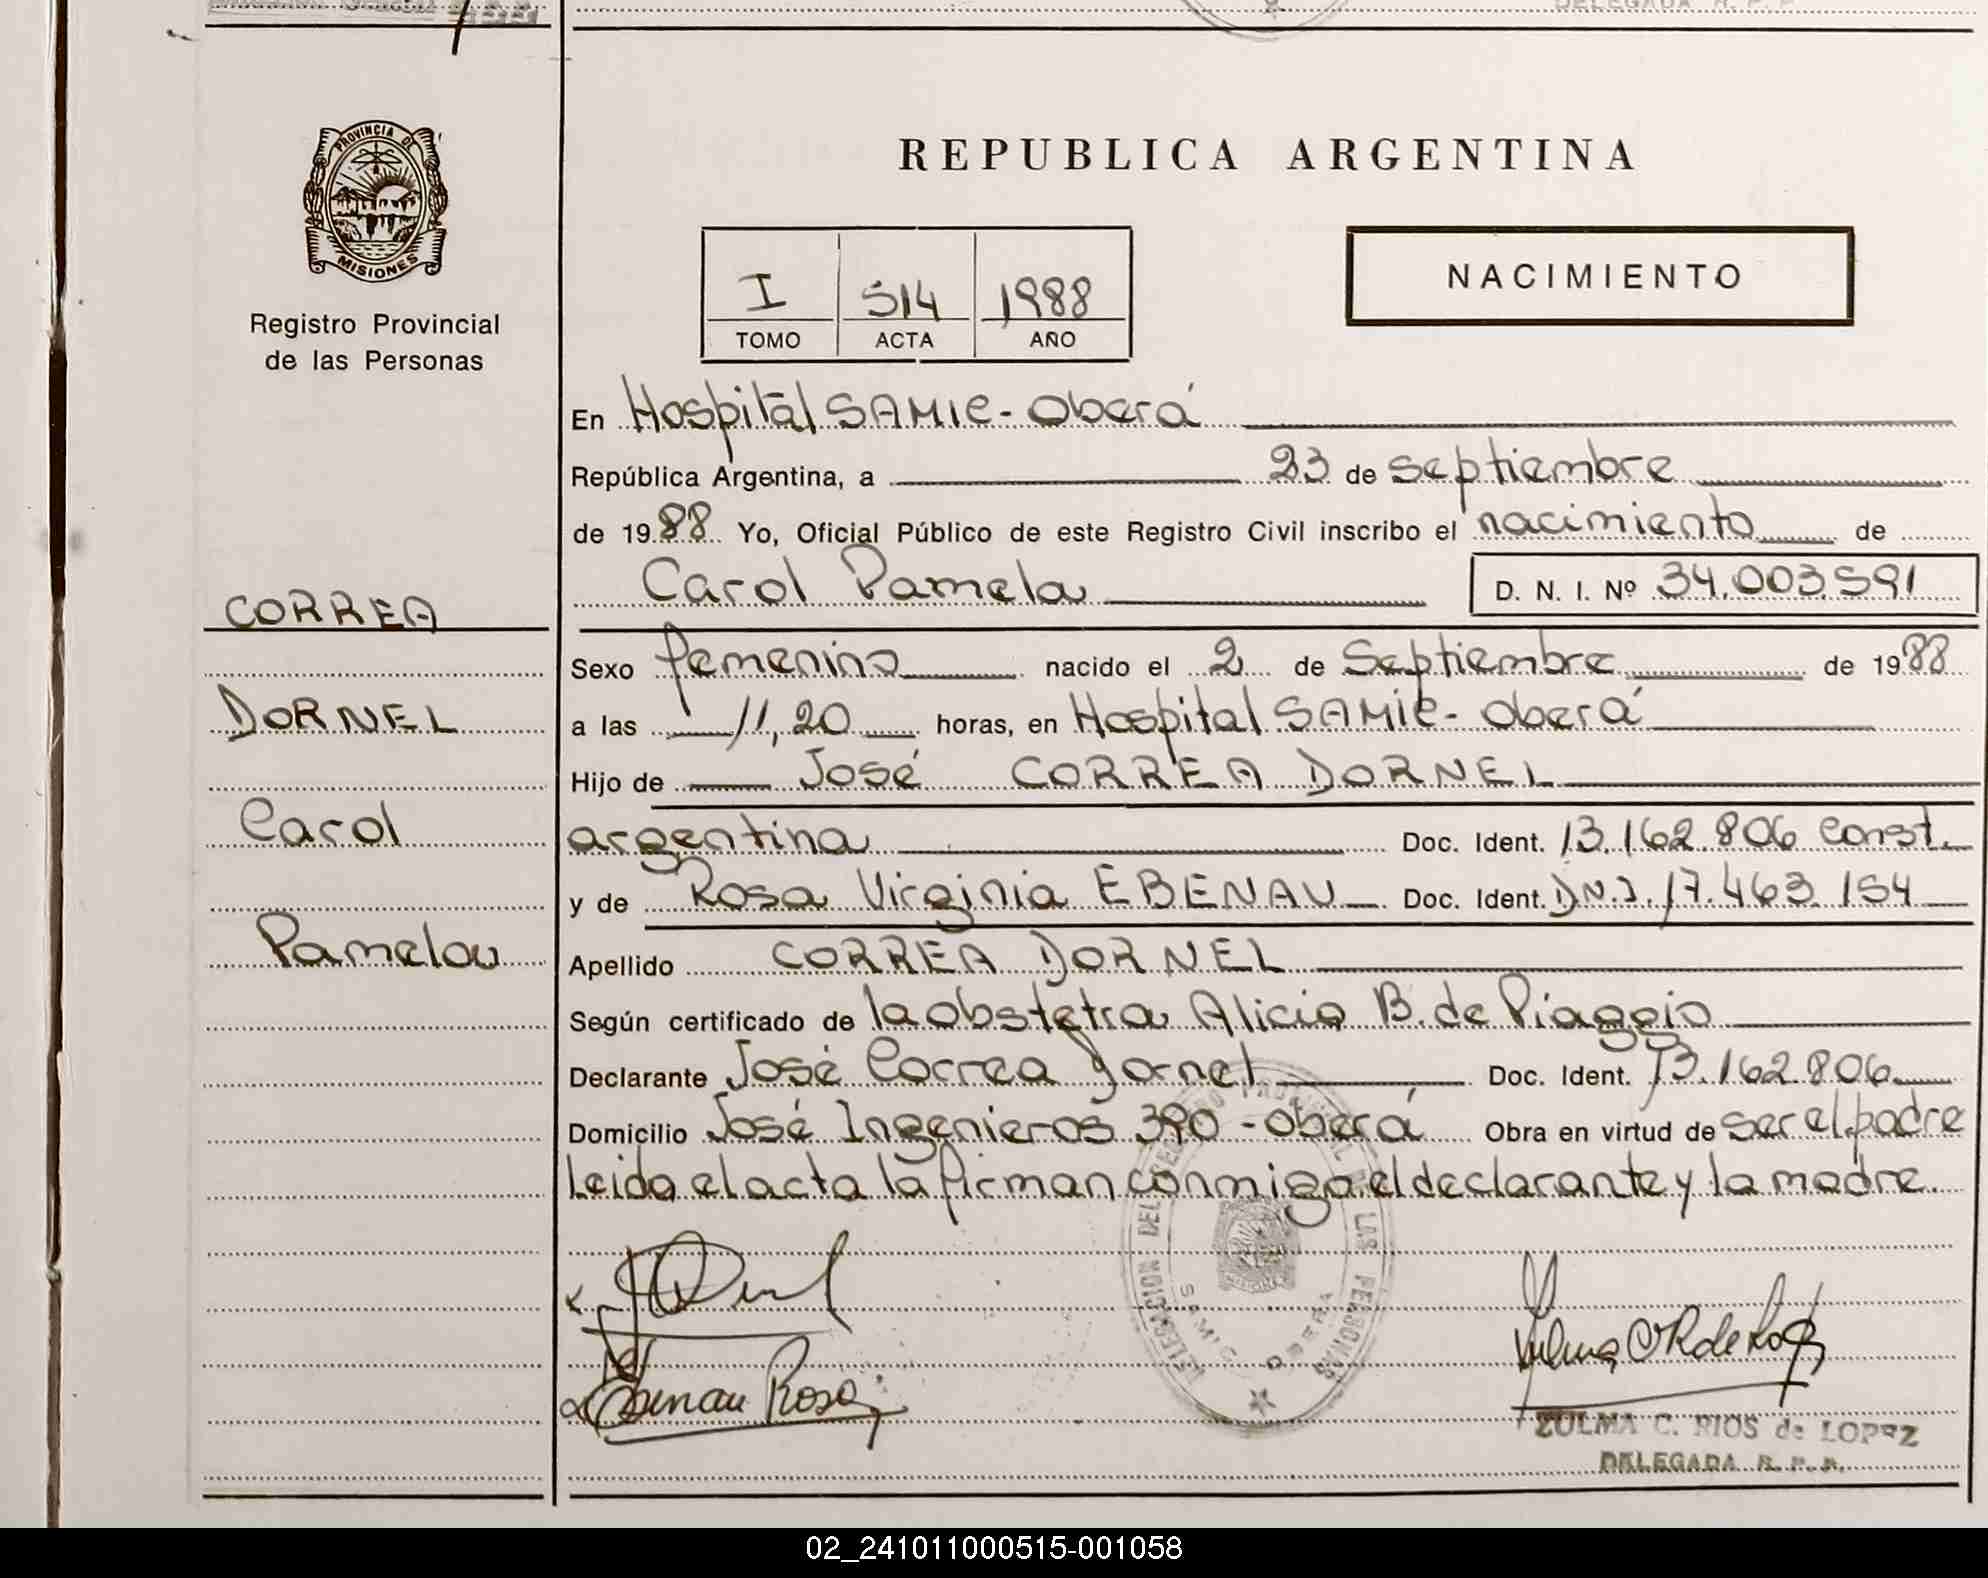 DELEGADA R. P. P.
REPUBLICA ARGENTINA
PROVINCIA DE
MISIONES
Registro Provincial
de las Personas
I 514 1988
TOMO ACTA AÑO
NACIMIENTO
En Hospital SAMIC - Oberá
República Argentina, a 23 de Septiembre
de 1988 Yo, Oficial Público de este Registro Civil inscribo el nacimiento de
Carol Pamela D. N. I. Nº 34.003.591
CORREA
DORNEL
Carol
Pamela
Sexo femenino nacido el 2 de Septiembre de 1988
a las 11,20 horas, en Hospital SAMIC - Oberá
Hijo de José CORREA DORNEL
argentina Doc. Ident. 13.162.806 const.
y de Rosa Virginia EBENAU Doc. Ident. D.N.I. 17.463.154
Apellido CORREA DORNEL
Según certificado de la obstetra Alicia B. de Piaggio
Declarante José Correa Dornel Doc. Ident. 13.162.806
Domicilio José Ingenieros 390 - Oberá Obra en virtud de ser el padre
Leida el acta la firman conmigo el declarante y la madre.
DELEGACION DEL REGISTRO PROVINCIAL DE LAS PERSONAS
SAMIC OBERA
Ebenau Rosa
Zulma C R de López
ZULMA C. RIOS de LOPEZ
DELEGADA R. P. P.
02_241011000515-001058